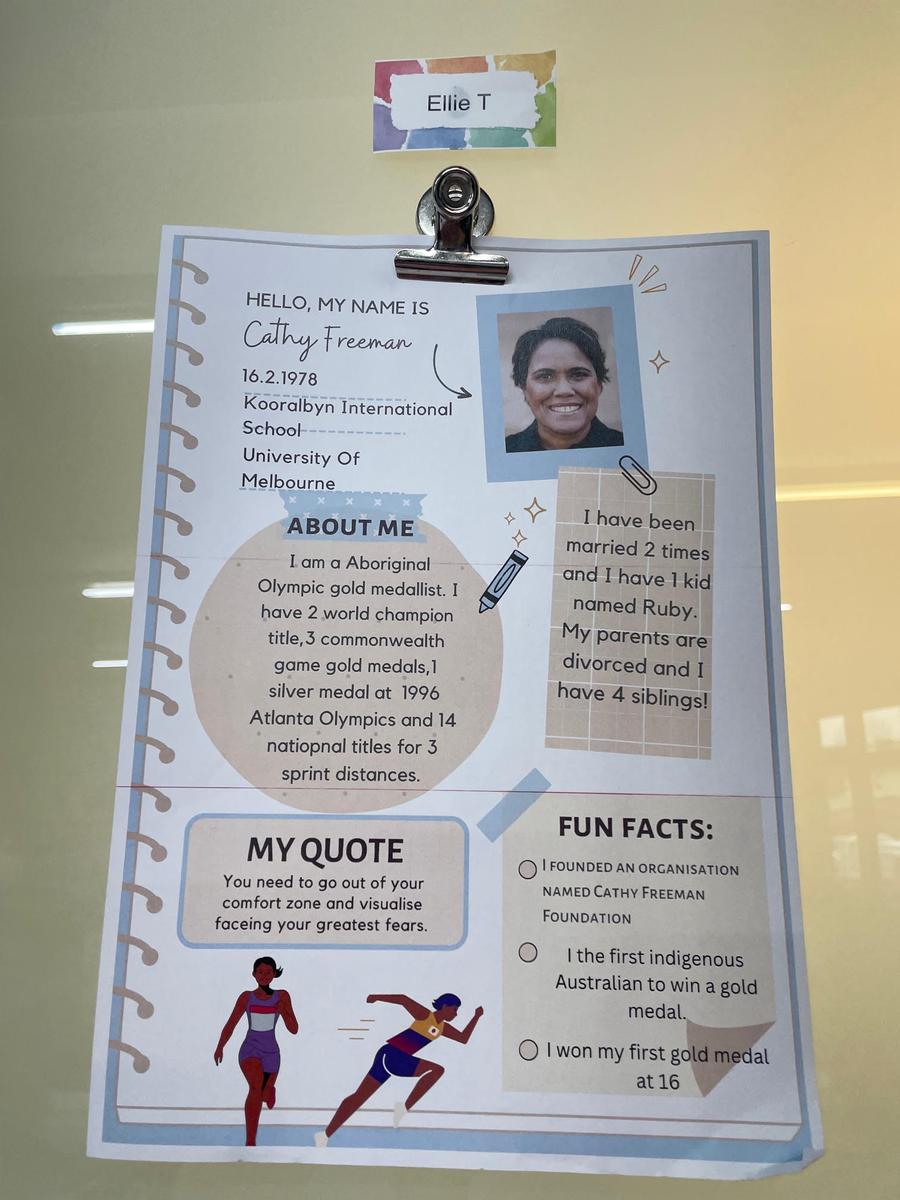 Ellie T
HELLO, MY NAME IS
Cathy Freeman
16.2.1978
Kooralbyn International
School
University Of
Melbourne
ABOUT ME
I am a Aboriginal
Olympic gold medallist. I
have 2 world champion
title,3 commonwealth
game gold medals,1
silver medal at 1996
Atlanta Olympics and 14
natiopnal titles for 3
sprint distances.
I have been
married 2 times
and I have 1 kid
named Ruby.
My parents are
divorced and I
have 4 siblings!
MY QUOTE
You need to go out of your
comfort zone and visualise
faceing your greatest fears.
FUN FACTS:
I FOUNDED AN ORGANISATION
NAMED CATHY FREEMAN
FOUNDATION
I the first indigenous
Australian to win a gold
medal.
I won my first gold medal
at 16